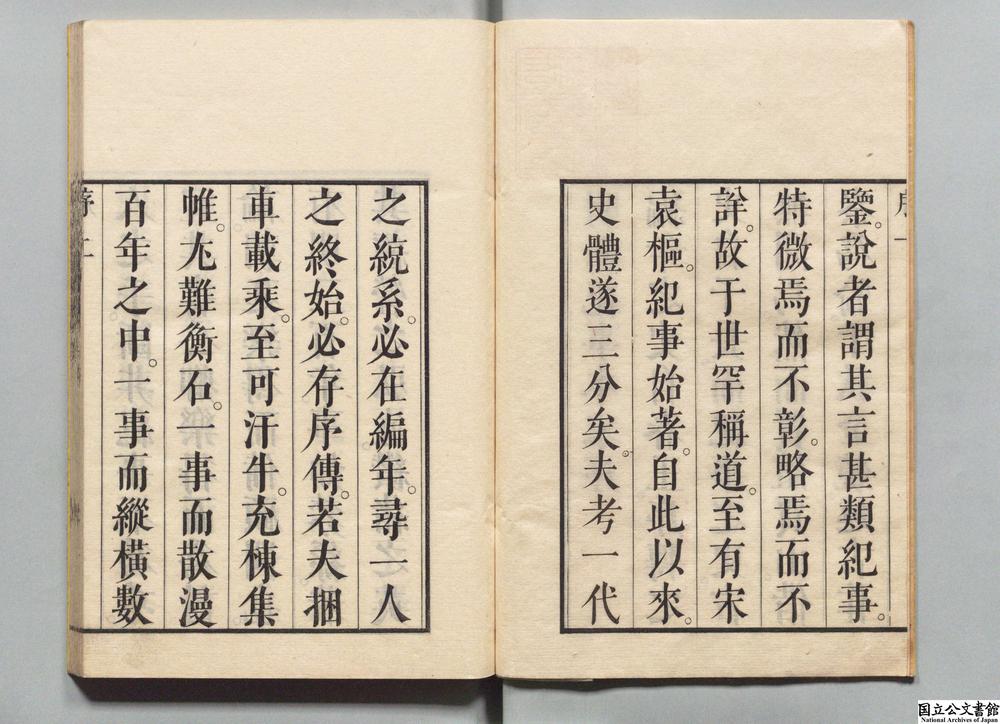 鑒。說者謂其言甚類紀事。
特微焉而不彰。略焉而不
詳。故于世罕稱道。至有宋
袁樞。紀事始著。自此以來。
史體遂三分矣。夫考一代
之統系。必在編年。尋一人
之終始。必存序傳。若夫捆
車載乘。至可汗牛。充棟集
帷。尢難衡石。一事而散漫
百年之中。一事而縱橫數
序 二
国立公文書館
National Archives of Japan